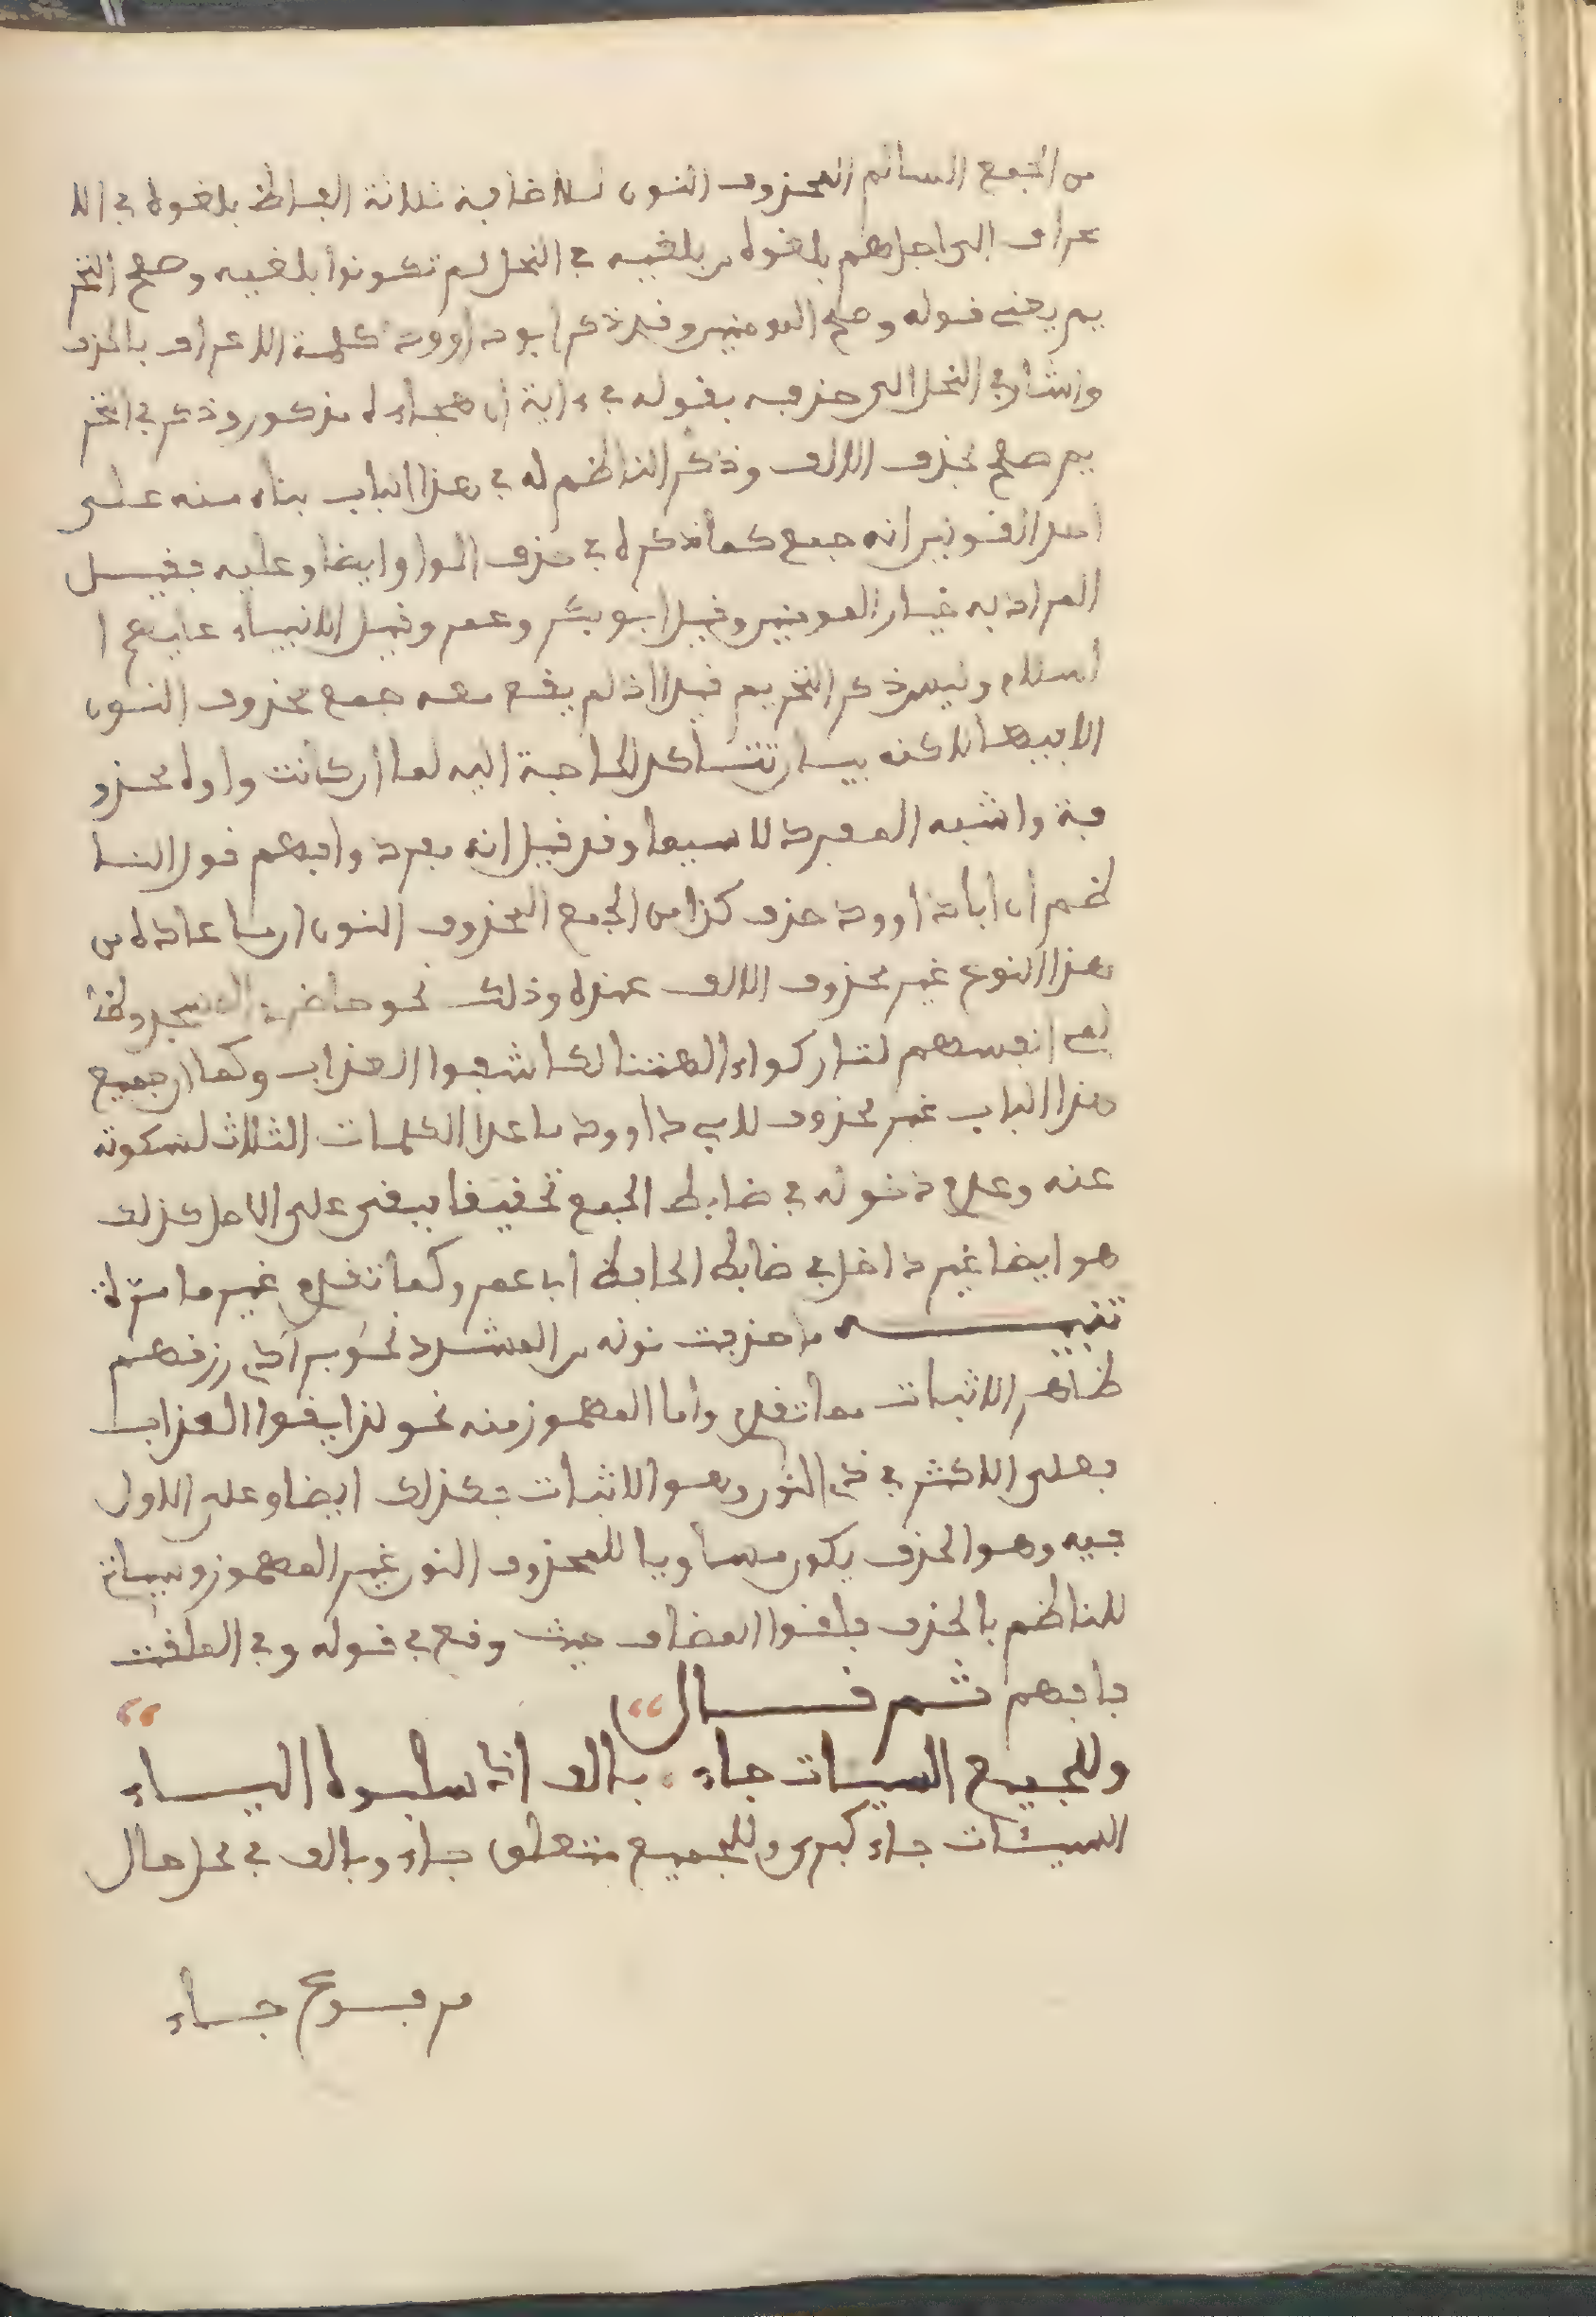 من الجمع السالم المحذوف النون للاضافة ثلاثة الفاظ بلغوه في الا
عراف الى اجل هم بلغوه وبلغيه في النحل لم تكونوا بلغيه وصلح التحر
يم يعني قوله وصلح المومنين وقد ذكر ابو داوود كلمة الاعراف بالحذف
واشار في النحل الى حذفه بقوله في ءاية ان هجاءه مذكور وذكر في التحر
يم صلح بحذف الالف وذكر الناظم له في هذا الباب بناء منه على
احد القولين انه جمع كما ذكره في حذف الواو ايضا وعليه فقيل
المراد به خيار المومنين وقيل ابو بكر وعمر وقيل الانبياء عليهم ا
لسلام وليس ذكر التحريم قيدا اذ لم يقع معه جمع محذوف النون
الا فيها لاكنه بيان تتاكد الحاجة اليه لما ان كانت واوه محذو
فة واشبه المفرد لاسيما وقد قيل انه مفرد وافهم قول النا
ظم ان ابا داوود حذف كذا من الجمع المحذوف النون ان ما عاداه من
هذا النوع غير محذوف الالف عنده وذلك نحو حاضري المسجد وظا
لمي انفسهم لتاركوا ءالهتنا لكاشفوا العذاب وكما ان جميع
هذا الباب غير محذوف لابي داوود ما عدا الكلمات الثلاث لسكوته
عنه وعدم دخوله في ضابط الجمع تحقيقا فبقي على الاصل كذلك
هو ايضا غير داخل في ضابط الحافظ ابي عمرو كما تقدم غير ما مرة
تنبيه ما حذفت نونه من المشدد نحو برادي رزقهم
ظاهر الاثبات مما تقدم واما المهموز منه نحو لذايقوا العذاب
فعلى الاكثر في ذي النون وهو الاثبات فكذلك ايضا وعلى الاول
فيه وهو الحذف يكون مساويا للمحذوف النون غير المهموز وسيات
للناظم بالحذف ملقوا المضاف حيث وقع في قوله وفي الملقت
فافهم ثم قال
وللجميع السيئات جاء بالف اذ سلبوه الياء
السيئات جاء كبرى وللجميع متعلق جاء وبالف في محل حال
مرفوع جاء